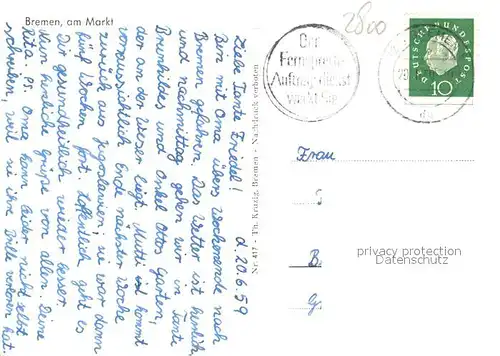 Bremen, am Markt
d. 20.6.59
Liebe Tante Friedel!
Bin mit Oma übers Wochenende nach
Bremen gefahren. Das Wetter ist herrlich,
und nachmittag gehen wir in Tante
Brunhildes und Onkel Ottos Garten,
der an der Weser liegt. Mutti kommt
voraussichtlich Ende nächster Woche
zurück aus Jugoslawien; sie war dann
fünf Wochen fort. Hoffentlich geht es
Dir gesundheitlich wieder besser.
Viele herzliche Grüße von allen. Deine
Rita. PS. Oma kann leider nicht selbst
schreiben, weil sie ihre Brille verloren hat.
Nr. 417 - Th. Kruzig, Bremen - Nachdruck verboten
2800
Der
Fernsprech-
Auftragsdienst
weckt Sie
20
DEUTSCHE BUNDESPOST
10
Frau
S
B
G
privacy protection
Datenschutz